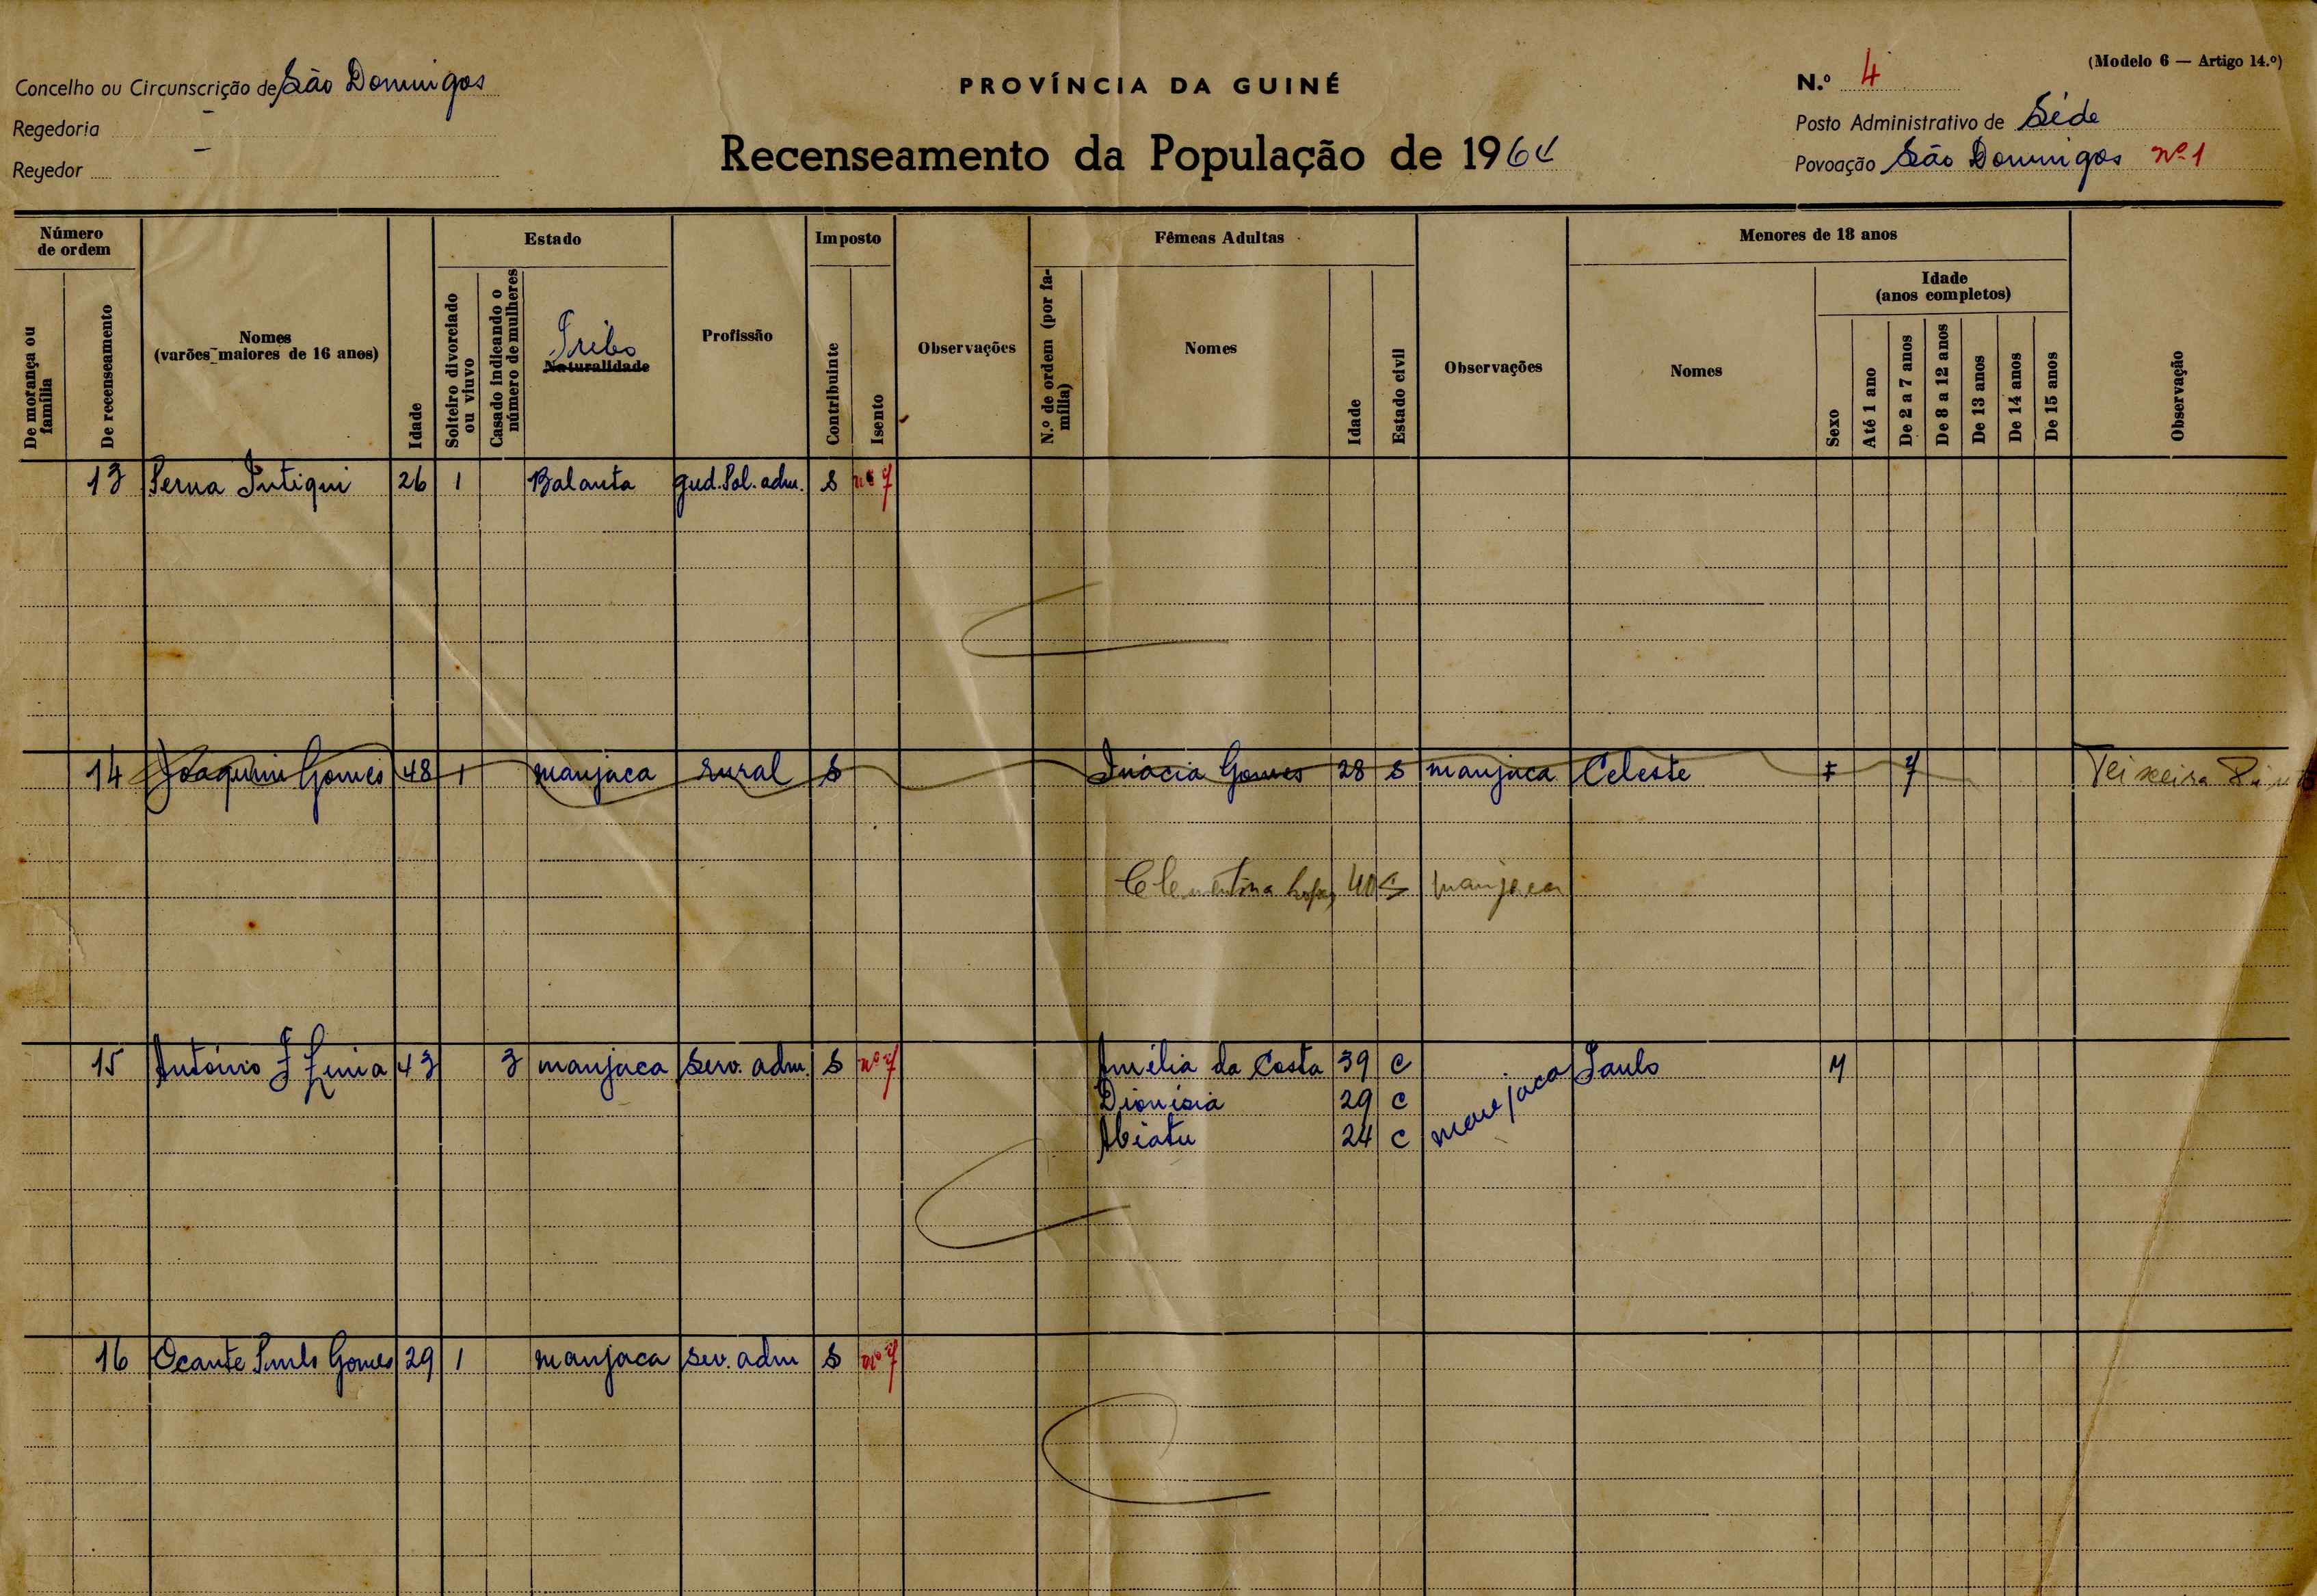 Concelho ou Circunscrição de São Domingos
Regedoria -
Regedor -
PROVÍNCIA DA GUINÉ
Recenseamento da População de 196
(Modelo 6 — Artigo 14.º)
N.º 4
Posto Administrativo de Séde
Povoação São Domingos nº 1
Número de ordem
De morança ou família
De recenseamento
Nomes
(varões maiores de 16 anos)
Idade
Estado
Solteiro divorciado ou viuvo
Casado indicando o número de mulheres
Tribo
Naturalidade
Profissão
Imposto
Contribuinte
Isento
Observações
Fêmeas Adultas
N.º de ordem (por família)
Nomes
Idade
Estado civil
Observações
Menores de 18 anos
Nomes
Sexo
Idade
(anos completos)
Até 1 ano
De 2 a 7 anos
De 8 a 12 anos
De 13 anos
De 14 anos
De 15 anos
Observação
13 26 1 Balanta adm. S nº 7
14 Joaquim Gomes 48 1 manjaca rural S Inácia Gomes 28 S manjaca Celeste F 7 Teixeira Pinto
Clementina 40 S manjaca
15 António 43 3 manjaca serv. adm. S nº 7 Amélia da Costa 39 C manjaca Paulo M
Dionísia 29 C
Abiatu 24 C
16 Ocante Paulo Gomes 29 1 manjaca sev. adm S nº 7